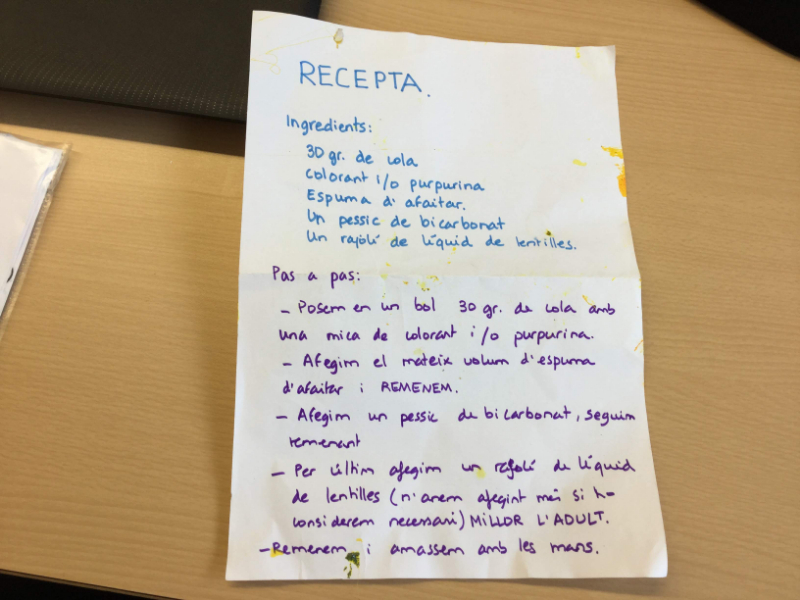 RECEPTA.
Ingredients:
30 gr. de cola
colorant i/o purpurina
Espuma d'afaitar.
Un pessic de bicarbonat
Un rajolí de líquid de lentilles.
Pas a pas:
- Posem en un bol 30 gr. de cola amb
una mica de colorant i/o purpurina.
- Afegim el mateix volum d'espuma
d'afaitar i REMENEM.
- Afegim un pessic de bicarbonat, seguim
remenant
- Per últim afegim un rajolí de líquid
de lentilles (n'anem afegint més si ho
considerem necessari) MILLOR L'ADULT.
- Remenem i amassem amb les mans.